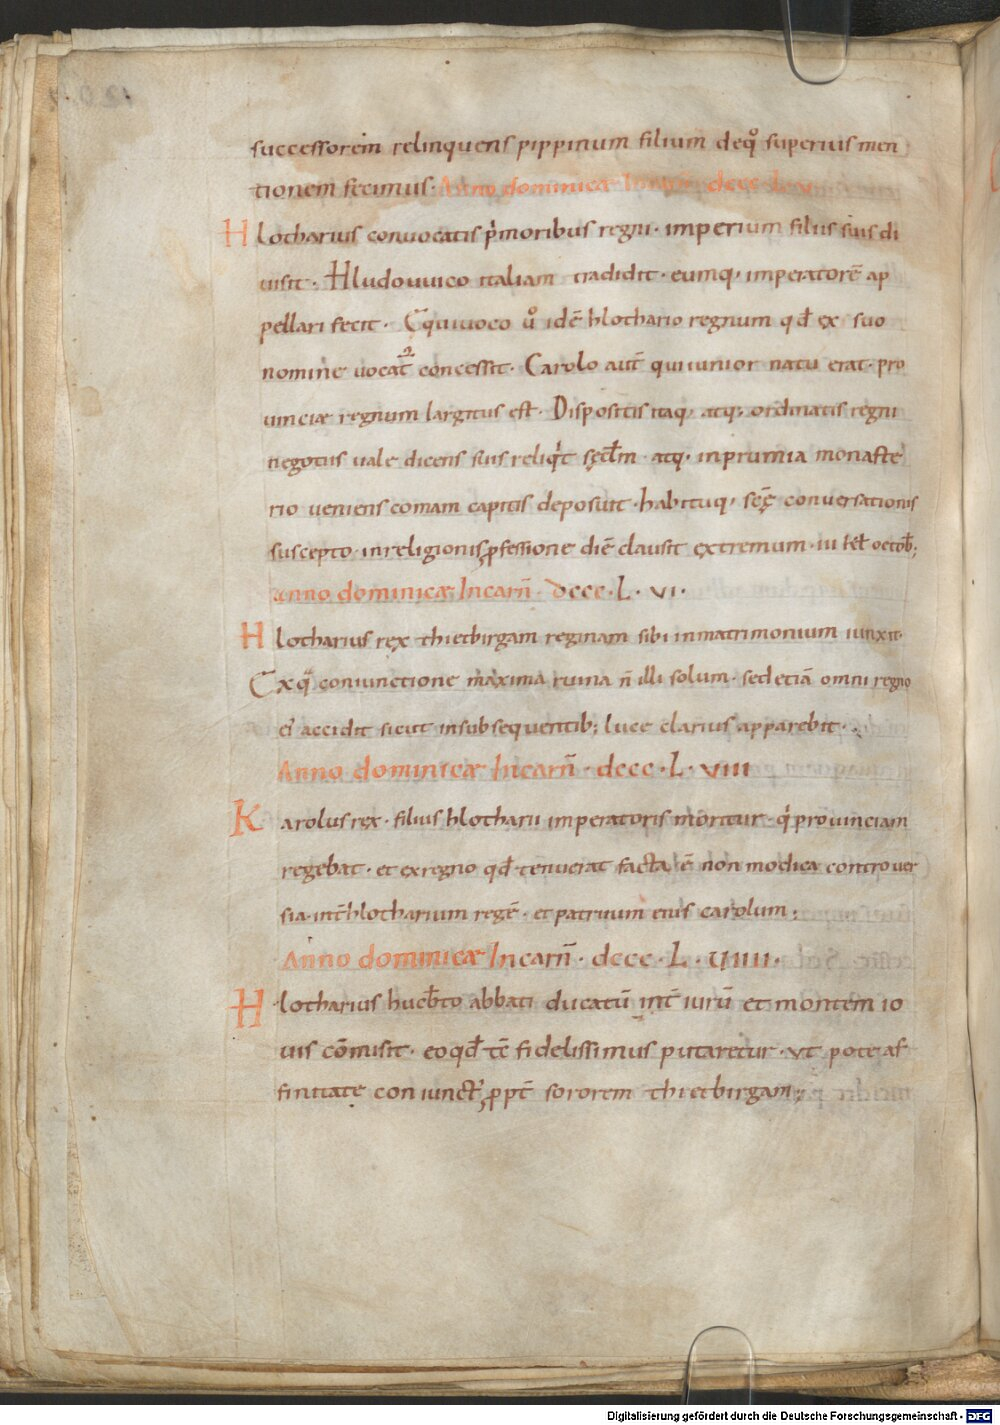 successorem relinquens pippinum filium deq̊ superius men
tionem fecimus. Anno dominicæ Incarñ. dccc. L. v.
Hlotharius convocatis p̍moribus regni. imperium filiis suis di
uisit. Hludouuico italiam tradidit. eumq; imperatorē ap
pellari fecit. Equiuoco ů idē hlothario regnum qđ ex suo
nomine uocat̄ concessit. Carolo aut̄ qui iunior natu erat. pro
uinciæ regnum largitus est. Dispositis itaq; atq; ordinatis regni
negotiis uale dicens suis reliq̍t sęcl̄m. atq; in prumia monaste
rio ueniens comam capitis deposuit. habituq; scę̄ conuersationis
suscepto. in religionis ꝓfessione diē clausit extremum. iii kł octob̄;
Anno dominicæ Incarñ. dccc. L. vi.
Hlotharius rex thietbirgam reginam sibi in matrimonium iunxit.
Ex q̊ coniunctione maxima ruina ñ illi solum. sed etiā omni regno
ei̍ accidit sicut in subsequentib; luce clarius apparebit.
Anno dominicæ Incarñ. dccc. L. viii
Karolus rex. filius hlotharii imperatoris moritur. q̍ prouinciam
regebat. et ex regno qđ tenuerat facta ē non modica controuer
sia. int̄ hlotharium regē. et patruum eius carolum;
Anno dominicæ Incarñ. dccc. L. viiii.
Hlotharius hucb̄to abbati ducatū int̄ iurū et montem io
uis cōmisit. eo qđ t̄c fidelissimus putaretur. ut pote af
finitate coniunct᾿ ꝓpt̄ sororem thietbirgam;
Digitalisierung gefördert durch die Deutsche Forschungsgemeinschaft - DFG